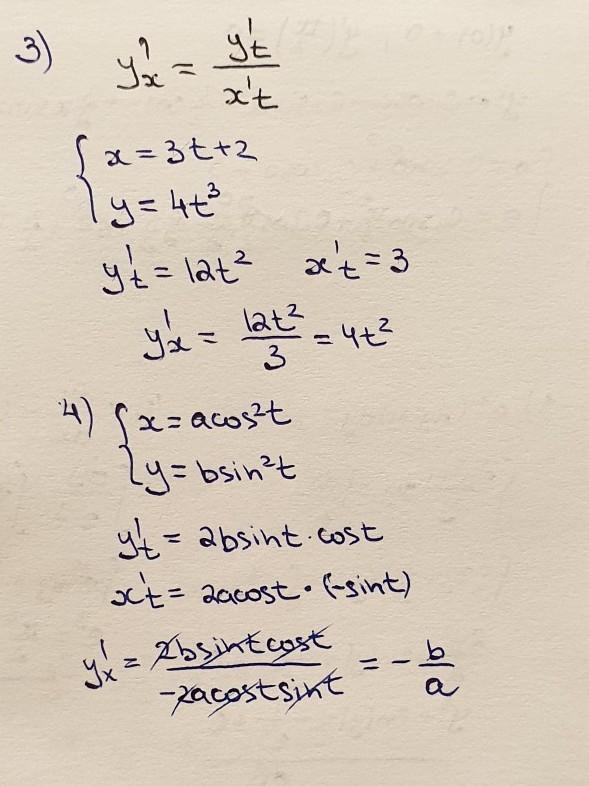 3) y'x = y't / x't
{ x = 3t+2
y = 4t³
y't = 12t² x't = 3
y'x = 12t² / 3 = 4t²
4) { x = acos²t
y = bsin²t
y't = 2bsint · cost
x't = 2acost · (-sint)
y'x = 2bsintcost / -2acostsint = - b / a